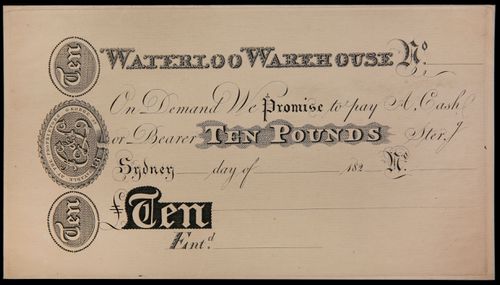 Ten
WATERLOO WAREHOUSE No.
On Demand We Promise to pay A. Cash
or Bearer TEN POUNDS Ster.g
Sydney day of 182 No.
£ Ten
Ent.d
Ten